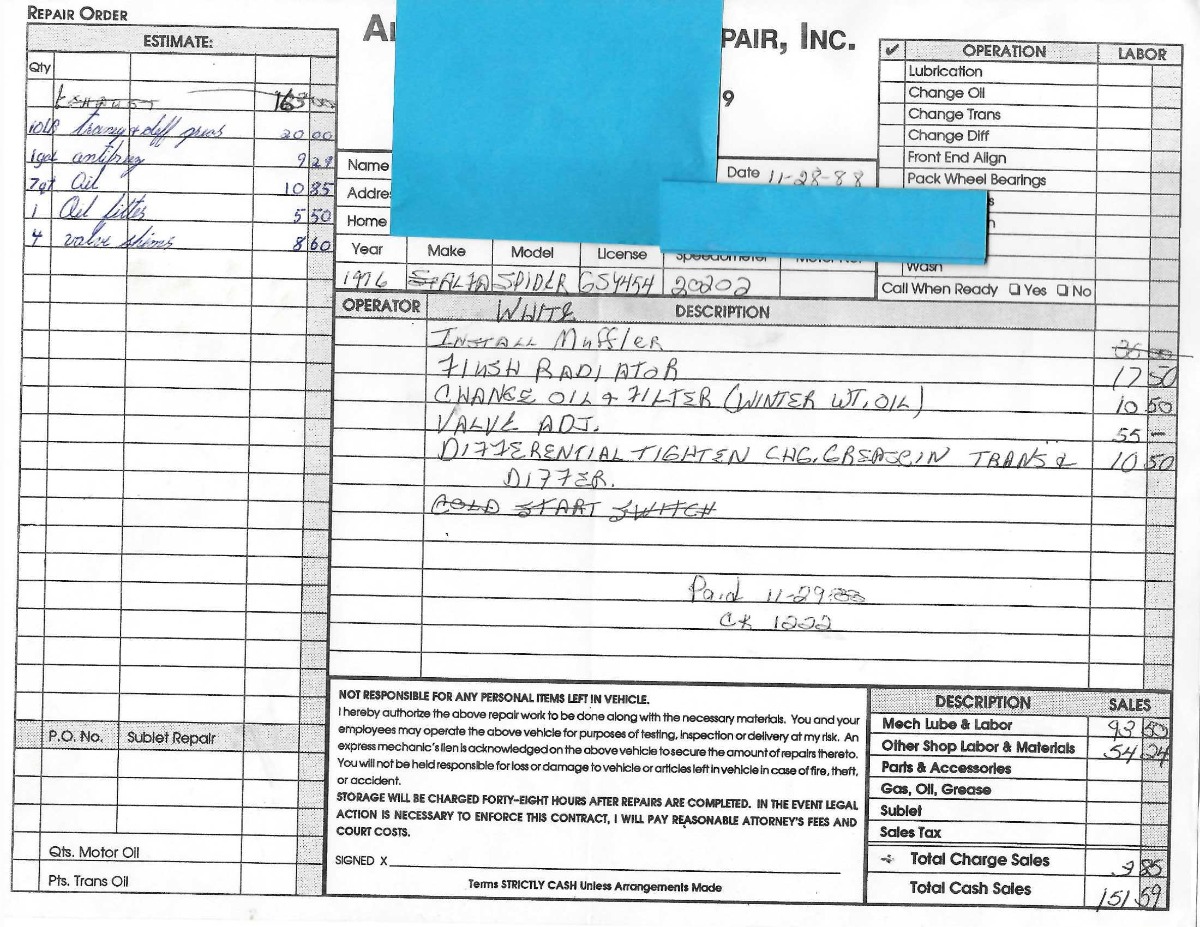 REPAIR ORDER
ESTIMATE:
Qty
EXHAUST 165 00
10LB trany & diff greas 20 00
1gal antifreez 9 29
7qt Oil 10 85
1 Oil filter 5 50
4 valve shims 8 60
P.O. No. Sublet Repair
Qts. Motor Oil
Pts. Trans Oil
PAIR, INC.
9
Name
Date 11-28-88
Addre
Home
Year Make Model License Speedometer
1976 ALFA SPIDER GSY454 20202
WHITE
OPERATOR DESCRIPTION
INSTALL MUFFLER 35
FLUSH RADIATOR 17 50
CHANGE OIL & FILTER (WINTER WT. OIL) 10 50
VALVE ADJ. 55 —
DIFFERENTIAL TIGHTEN CHG. GREASE IN TRANS & 10 50
DIFFER.
COLD START SWITCH
Paid 11-29-88
CK 1222
✔ OPERATION LABOR
Lubrication
Change Oil
Change Trans
Change Diff
Front End Align
Pack Wheel Bearings
s
n
Wash
Call When Ready ☐ Yes ☐ No
NOT RESPONSIBLE FOR ANY PERSONAL ITEMS LEFT IN VEHICLE.
I hereby authorize the above repair work to be done along with the necessary materials. You and your
employees may operate the above vehicle for purposes of testing, inspection or delivery at my risk. An
express mechanic's lien is acknowledged on the above vehicle to secure the amount of repairs thereto.
You will not be held responsible for loss or damage to vehicle or articles left in vehicle in case of fire, theft,
or accident.
STORAGE WILL BE CHARGED FORTY-EIGHT HOURS AFTER REPAIRS ARE COMPLETED. IN THE EVENT LEGAL
ACTION IS NECESSARY TO ENFORCE THIS CONTRACT, I WILL PAY REASONABLE ATTORNEY'S FEES AND
COURT COSTS.
SIGNED X
Terms STRICTLY CASH Unless Arrangements Made
DESCRIPTION SALES
Mech Lube & Labor 93 50
Other Shop Labor & Materials 54 24
Parts & Accessories
Gas, Oil, Grease
Sublet
Sales Tax
Total Charge Sales 3 85
Total Cash Sales 151 59